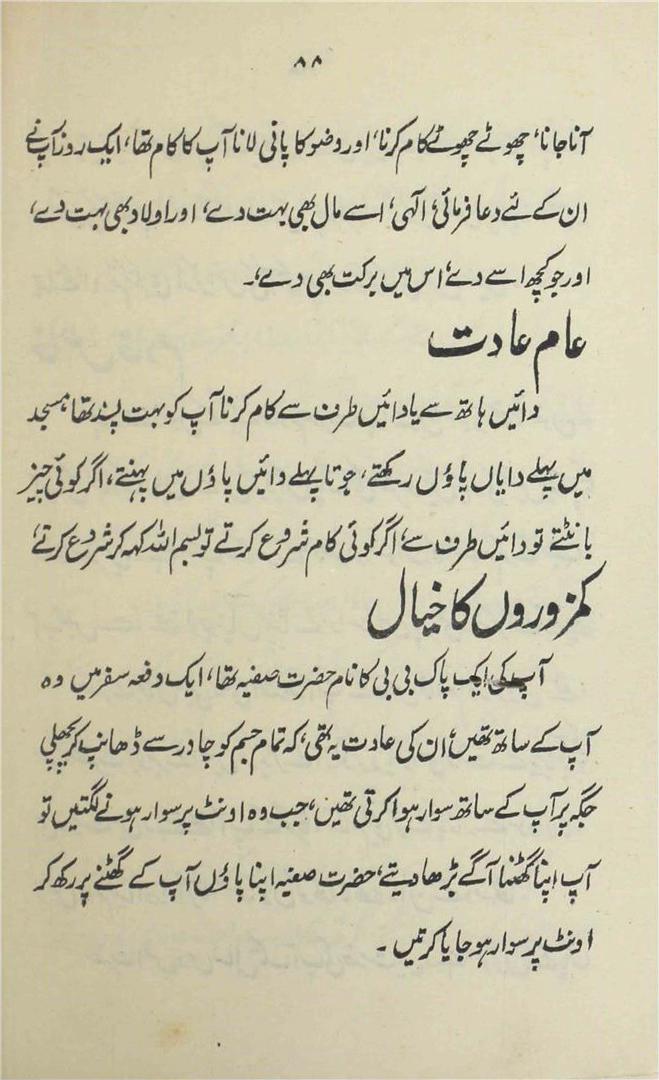 ۸۸
آنا جانا، چھوٹے چھوٹے کام کرنا، اور وضو کا پانی لانا آپ کا کام تھا، ایک روز آپ نے
ان کے لئے دعا فرمائی، الٰہی، اسے مال بھی بہت دے، اور اولاد بھی بہت دے،
اور جو کچھ اسے دے، اس میں برکت بھی دے،۔
عام عادت
دائیں ہاتھ سے یا دائیں طرف سے کام کرنا آپ کو بہت پسند تھا، مسجد
میں پہلے دایاں پاؤں رکھتے، جوتا پہلے دائیں پاؤں میں پہنتے، اگر کوئی چیز
بانٹتے تو دائیں طرف سے، اگر کوئی کام شروع کرتے تو بسم اللہ کہہ کر شروع کرتے،
کمزوروں کا خیال
آپ کی ایک پاک بی بی کا نام حضرت صفیہ تھا، ایک دفعہ سفر میں وہ
آپ کے ساتھ تھیں، ان کی عادت یہ تھی، کہ تمام جسم کو چادر سے ڈھانپ کر پچھلی
جگہ پر آپ کے ساتھ سوار ہوا کرتی تھیں، جب وہ اونٹ پر سوار ہونے لگتیں تو
آپ اپنا گھٹنا آگے بڑھا دیتے، حضرت صفیہ اپنا پاؤں آپ کے گھٹنے پر رکھ کر
اونٹ پر سوار ہو جایا کرتیں ۔